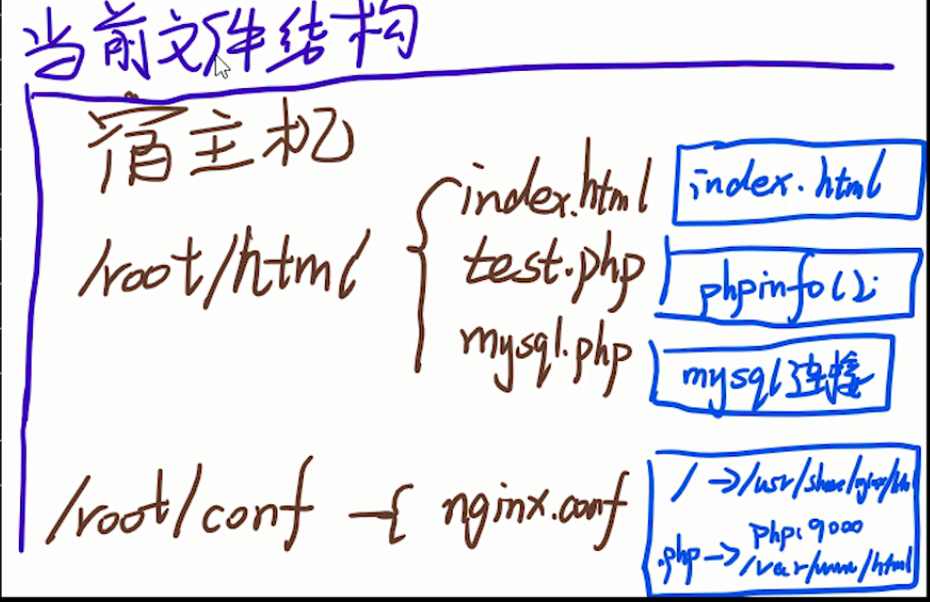 当前文件结构
宿主机
/root/html { index.html index.html
test.php phpinfo();
mysql.php mysql连接
/root/conf -{ nginx.conf / -> /usr/share/nginx/html
.php -> php:9000
/var/www/html